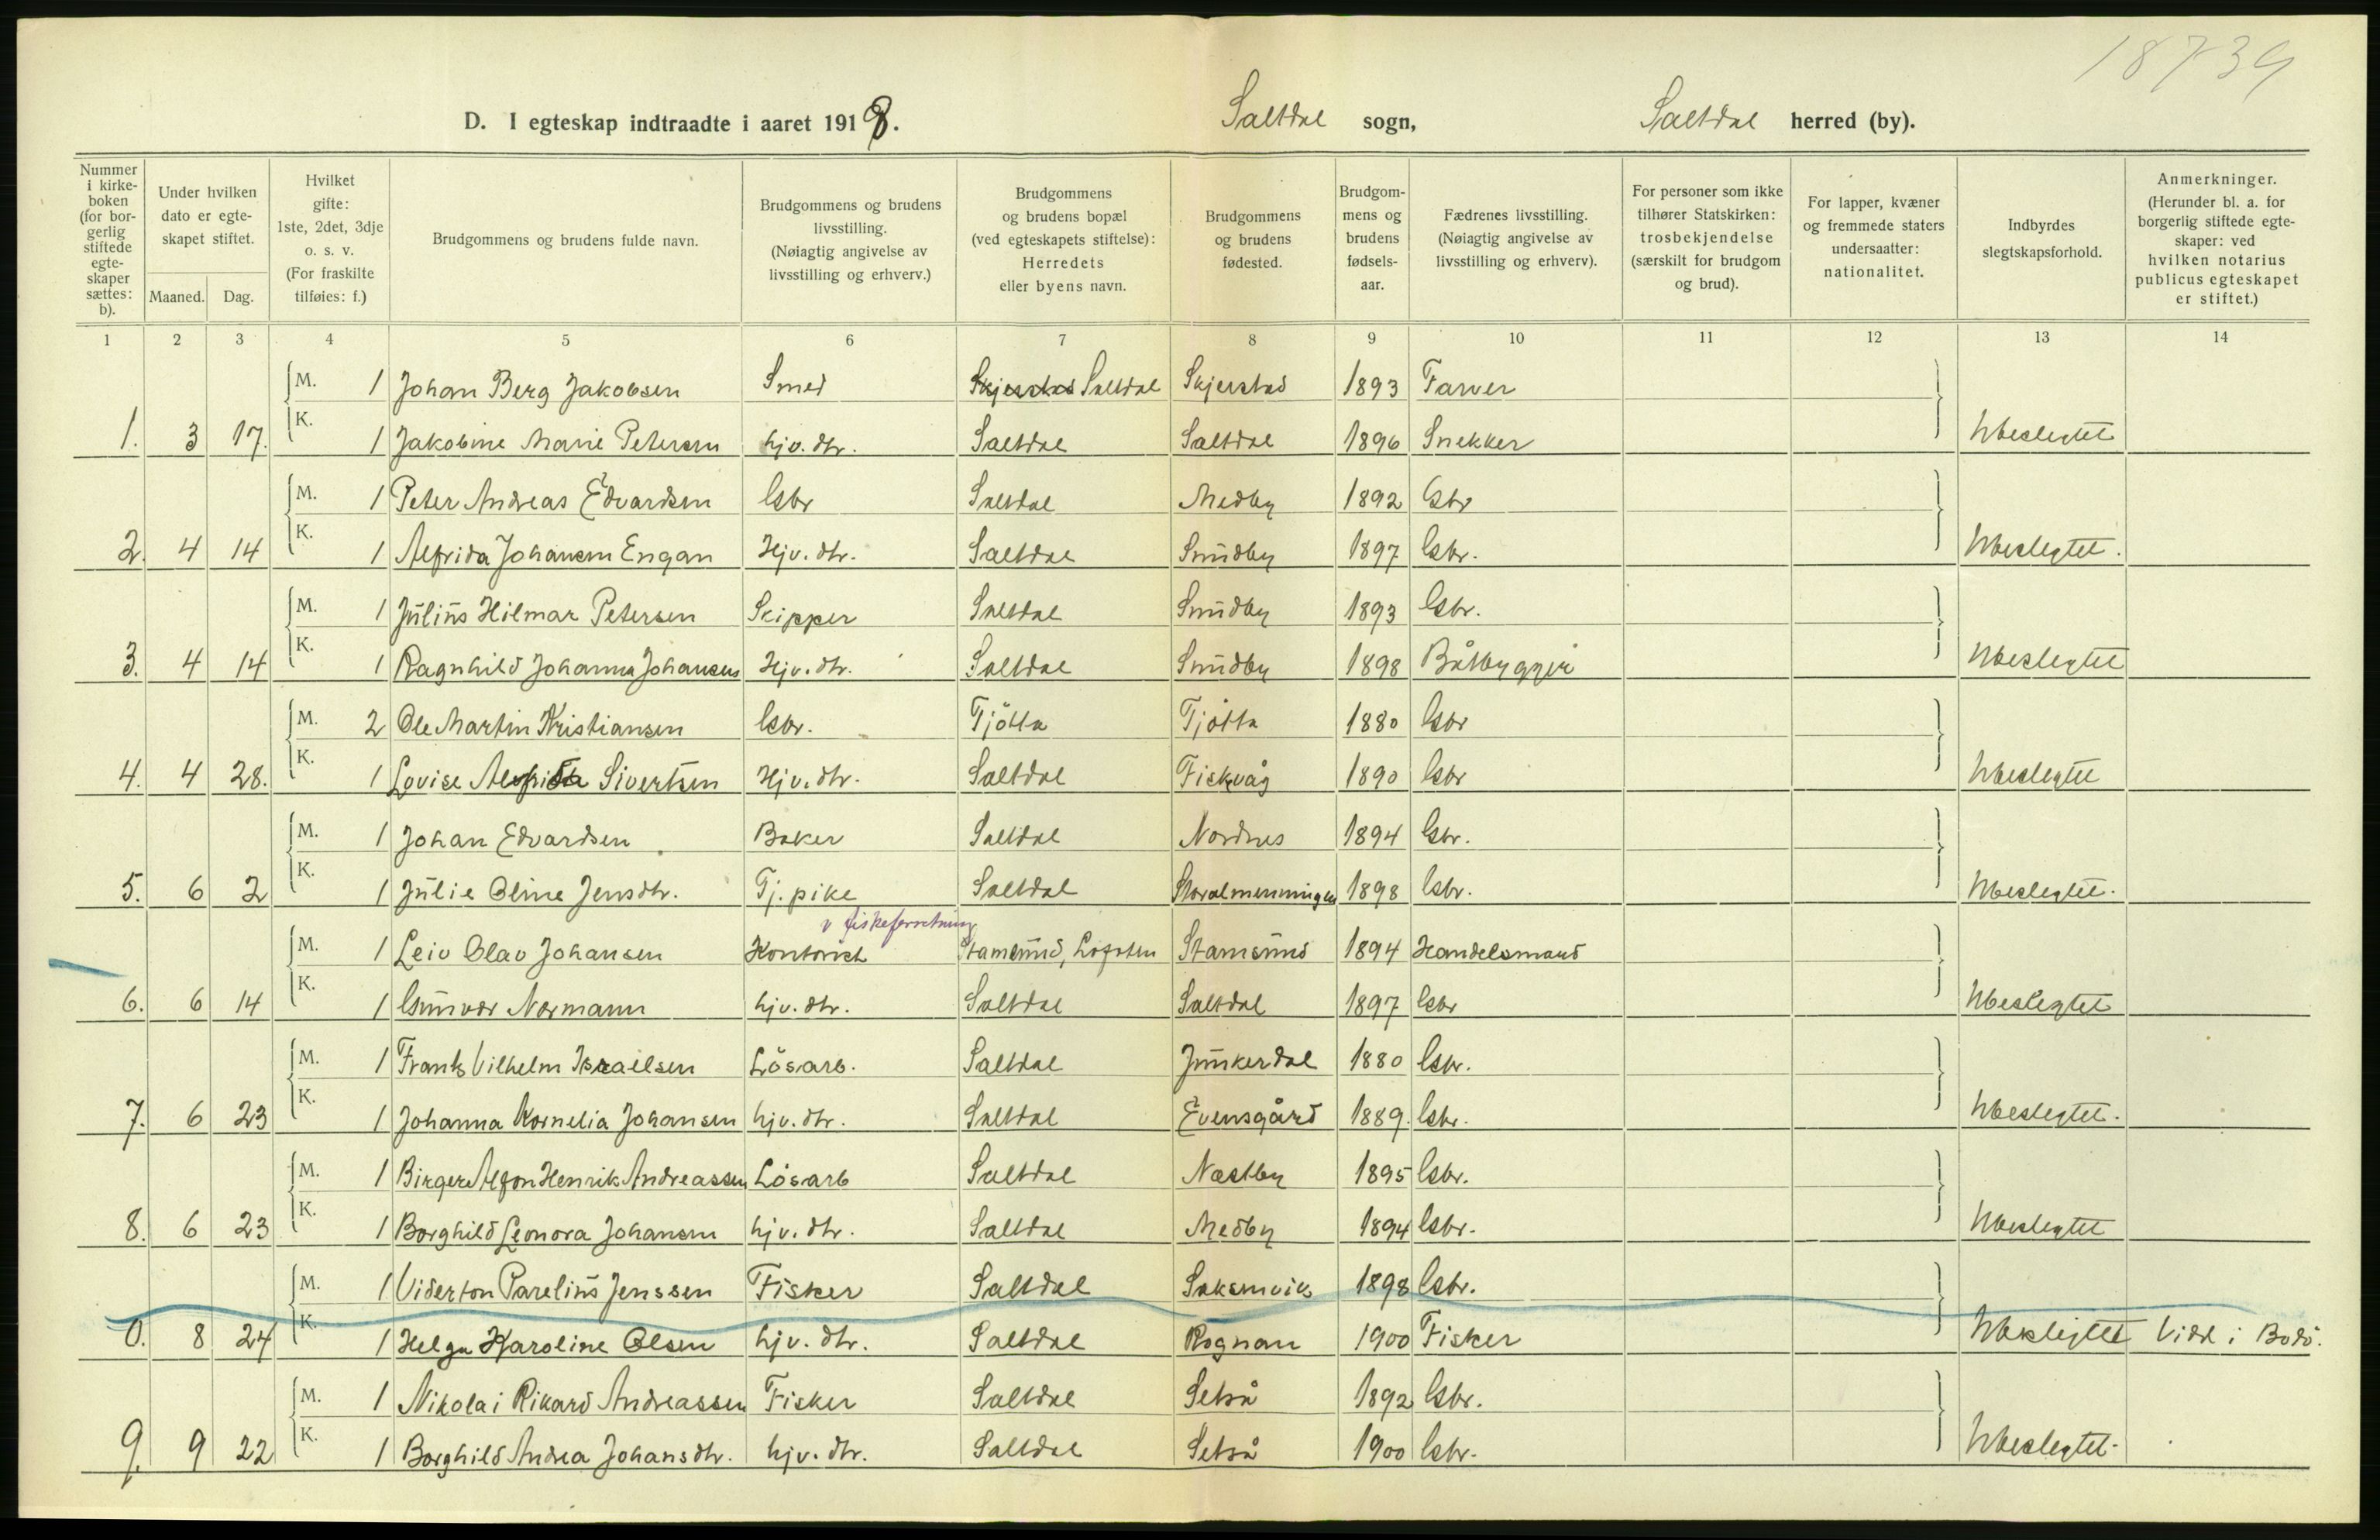 18739
D. I egteskap indtraadte i aaret 1918. Saltdal sogn, Saltdal herred (by).
Nummer i kirkeboken (for borgerlig stiftede egteskaper sættes: b).
Under hvilken dato er egteskapet stiftet.
Maaned. Dag.
Hvilket gifte: 1ste, 2det, 3dje o. s. v. (For fraskilte tilføies: f.)
Brudgommens og brudens fulde navn.
Brudgommens og brudens livsstilling. (Nøiagtig angivelse av livsstilling og erhverv.)
Brudgommens og brudens bopæl (ved egteskapets stiftelse): Herredets eller byens navn.
Brudgommens og brudens fødested.
Brudgommens og brudens fødselsaar.
Fædrenes livsstilling. (Nøiagtig angivelse av livsstilling og erhverv).
For personer som ikke tilhører Statskirken: trosbekjendelse (særskilt for brudgom og brud).
For lapper, kvæner og fremmede staters undersaatter: nationalitet.
Indbyrdes slegtskapsforhold.
Anmerkninger. (Herunder bl. a. for borgerlig stiftede egteskaper: ved hvilken notarius publicus egteskapet er stiftet.)
1 2 3 4 5 6 7 8 9 10 11 12 13 14
M. 1 Johan Berg Jakobsen Smed Skjerstad Saltdal Skjerstad 1893 Farver
1. 3 17. K. 1 Jakobine Marie Petersen hjv. dtr. Saltdal Saltdal 1896 Snekker Ubeslegtet
M. 1 Peter Andreas Edvardsen Gbr Saltdal Medby 1892 Gbr
2. 4 14 K. 1 Alfrida Johansen Engan Hjv. dtr. Saltdal Sundby 1897 Gbr. Ubeslegtet.
M. 1 Julius Hilmar Petersen Skipper Saltdal Sundby 1893 Gbr.
3. 4 14 K. 1 Ragnhild Johanna Johansen Hjv. dtr. Saltdal Sundby 1898 Båtbygger Ubeslegtet
M. 2 Ole Martin Kristiansen Gbr. Tjötta Tjötta 1880 Gbr
4. 4 28. K. 1 Lovise Alfrida Sivertsen Hjv. dtr. Saltdal Fiskvåg 1890 Gbr Ubeslegtet
M. 1 Johan Edvardsen Baker Saltdal Nordnes 1894 Gbr.
5. 6 2 K. 1 Julie Oline Jensdtr. Tj. pike Saltdal Storalmenningen 1898 Gbr. Ubeslegtet.
v fiskeforretning
M. 1 Leiv Olav Johansen Kontorist Stamsund, Lofoten Stamsund 1894 Handelsmand
6. 6 14 K. 1 Gunvor Normann hjv. dtr. Saltdal Saltdal 1897 Gbr Ubeslegtet
M. 1 Frants Vilhelm Israelsen Lösarb. Saltdal Junkerdal 1880 Gbr.
7. 6 23 K. 1 Johanna Kornelia Johansen hjv. dtr. Saltdal Evensgård 1889. Gbr. Ubeslegtet.
M. 1 Birger Alfon Henrik Andreassen Lösarb Saltdal Nestby 1895 Gbr.
8. 6 23 K. 1 Borghild Leonora Johansen hjv. dtr. Saltdal Medby 1894 Gbr. Ubeslegtet
M. 1 Viderton Parelius Jenssen Fisker Saltdal Saksenvik 1898 Gbr.
0. 8 24 K. 1 Helga Karoline Olsen hjv. dtr. Saltdal Rognan 1900 Fisker Ubeslegtet Viet i Bodö.
M. 1 Nikolai Rikard Andreassen Fisker Saltdal Setså 1892 Gbr.
9. 9 22 K. 1 Borghild Andrea Johansdtr. hjv. dtr. Saltdal Setså 1900 Gbr. Ubeslegtet.